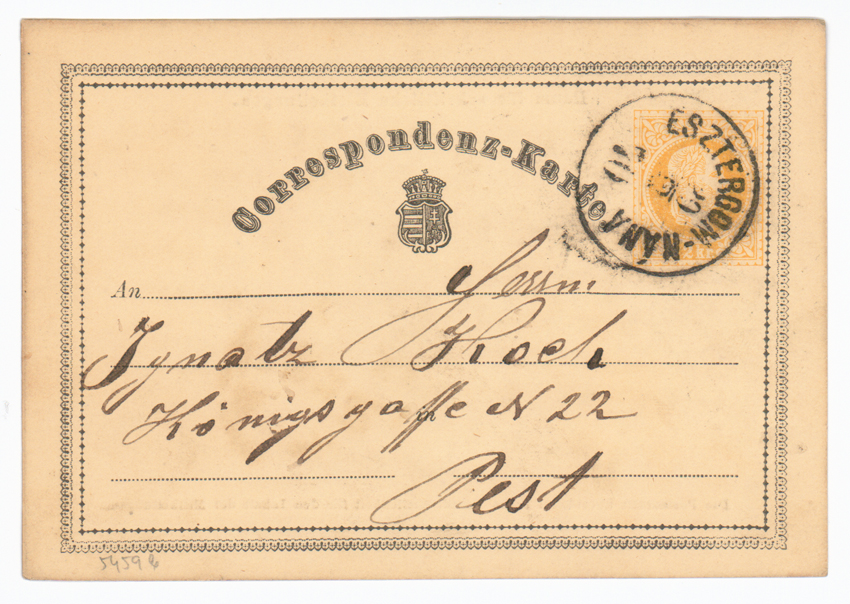 Correspondenz-Karte
ESZTERGOM-NÁNA
An Herrn
Ignatz Koch
Königsgasse N 22
in
Pest
5459